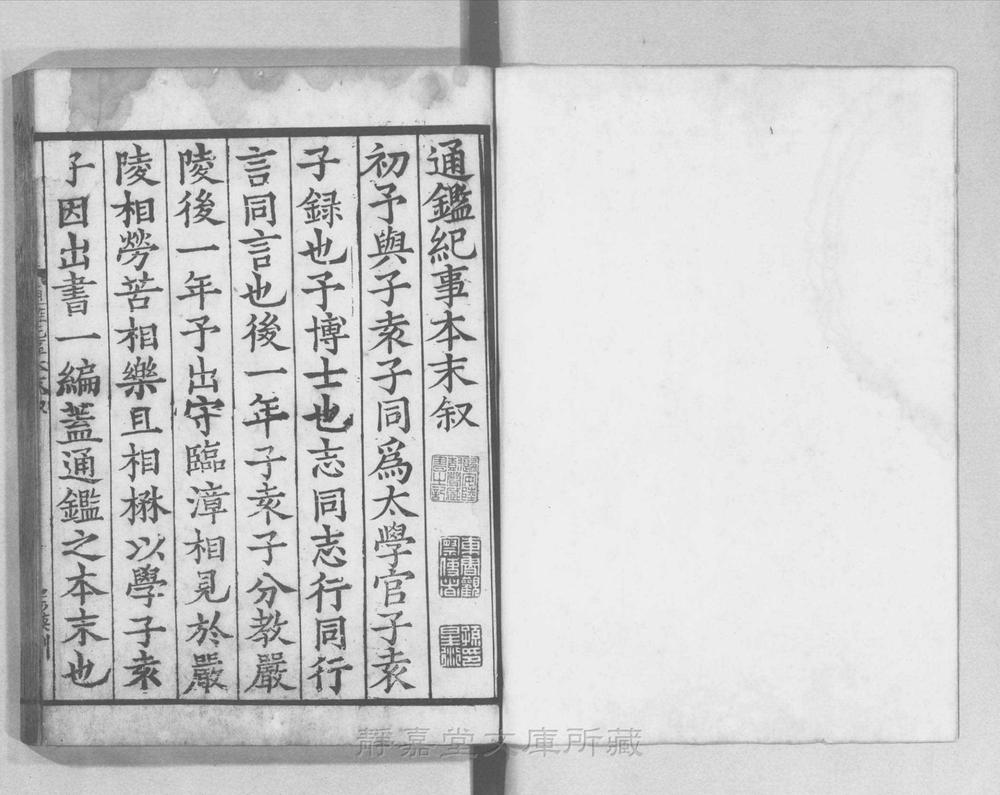 通鑑紀事本末叙
初予與子袁子同爲太學官子袁
子録也予博士也志同志行同行
言同言也後一年子袁子分教嚴
陵後一年予出守臨漳相見於嚴
陵相勞苦相樂且相楙以學子袁
子因出書一編蓋通鑑之本末也
靜嘉堂文庫所藏